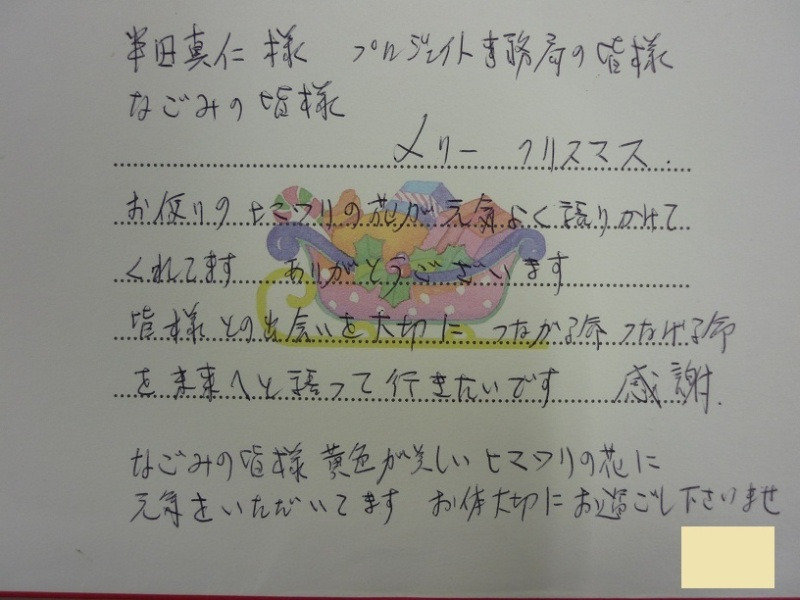 半田真仁様 プロジェイト事務局の皆様
なごみの皆様
メリー クリスマス.
お便りのヒマワリの花が元気よく語りかけて
くれてます ありがとうございます
皆様との出会いを大切に つながる命 つなげる命
を未来へと語って行きたいです 感謝.
なごみの皆様 黄色が美しいヒマワリの花に
元気をいただいてます お体大切にお過ごし下さいませ